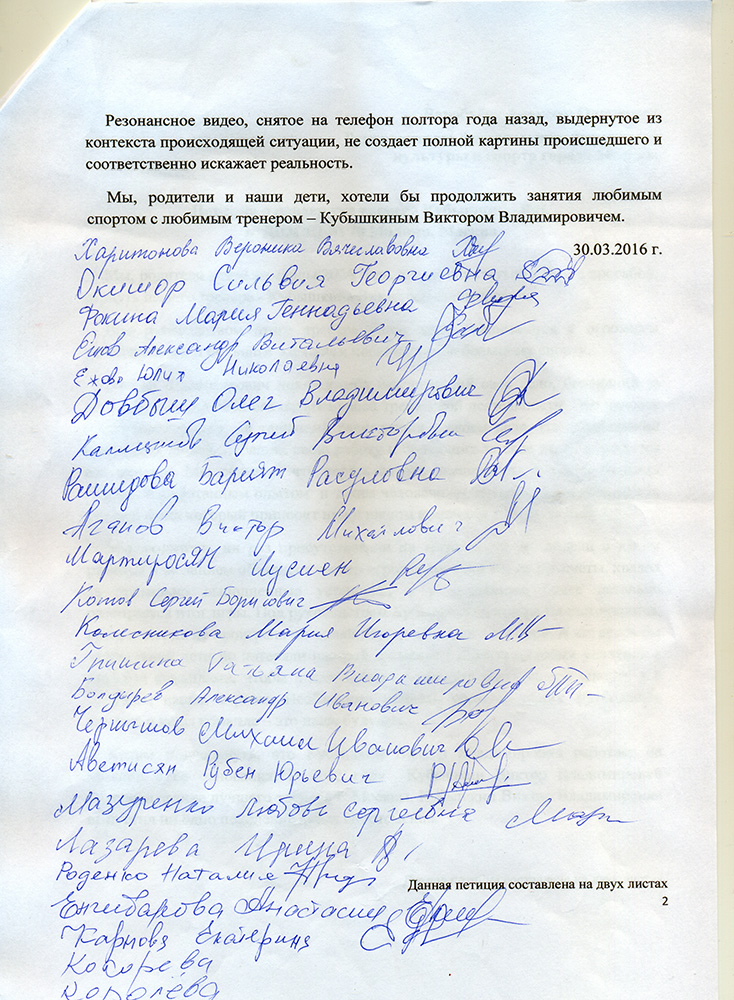 Резонансное видео, снятое на телефон полтора года назад, выдернутое из
контекста происходящей ситуации, не создает полной картины происшедшего и
соответственно искажает реальность.
Мы, родители и наши дети, хотели бы продолжить занятия любимым
спортом с любимым тренером – Кубышкиным Виктором Владимировичем.
30.03.2016 г.
Харитонова Вероника Вячеславовна
Окишор Сильвия Георгиевна
Фокина Мария Геннадьевна
Александр Витальевич
Юлия Николаевна
Довбыш Олег Владимирович
Сергей Викторович
Рашидова Барият Расуловна
Агапов Виктор Михайлович
Мартиросян Лусине
Котов Сергей Борисович
Колесникова Мария Игоревна
Гришина Татьяна Владимировна
Болдырев Александр Иванович
Чернышов Михаил Иванович
Аветисян Рубен Юрьевич
Мазуренко Любовь Сергеевна
Лазарева Ирина
Роденко Наталия
Данная петиция составлена на двух листах
2
Енгибарова Анастасия
Карпова Екатерина
Косарева
Королёва